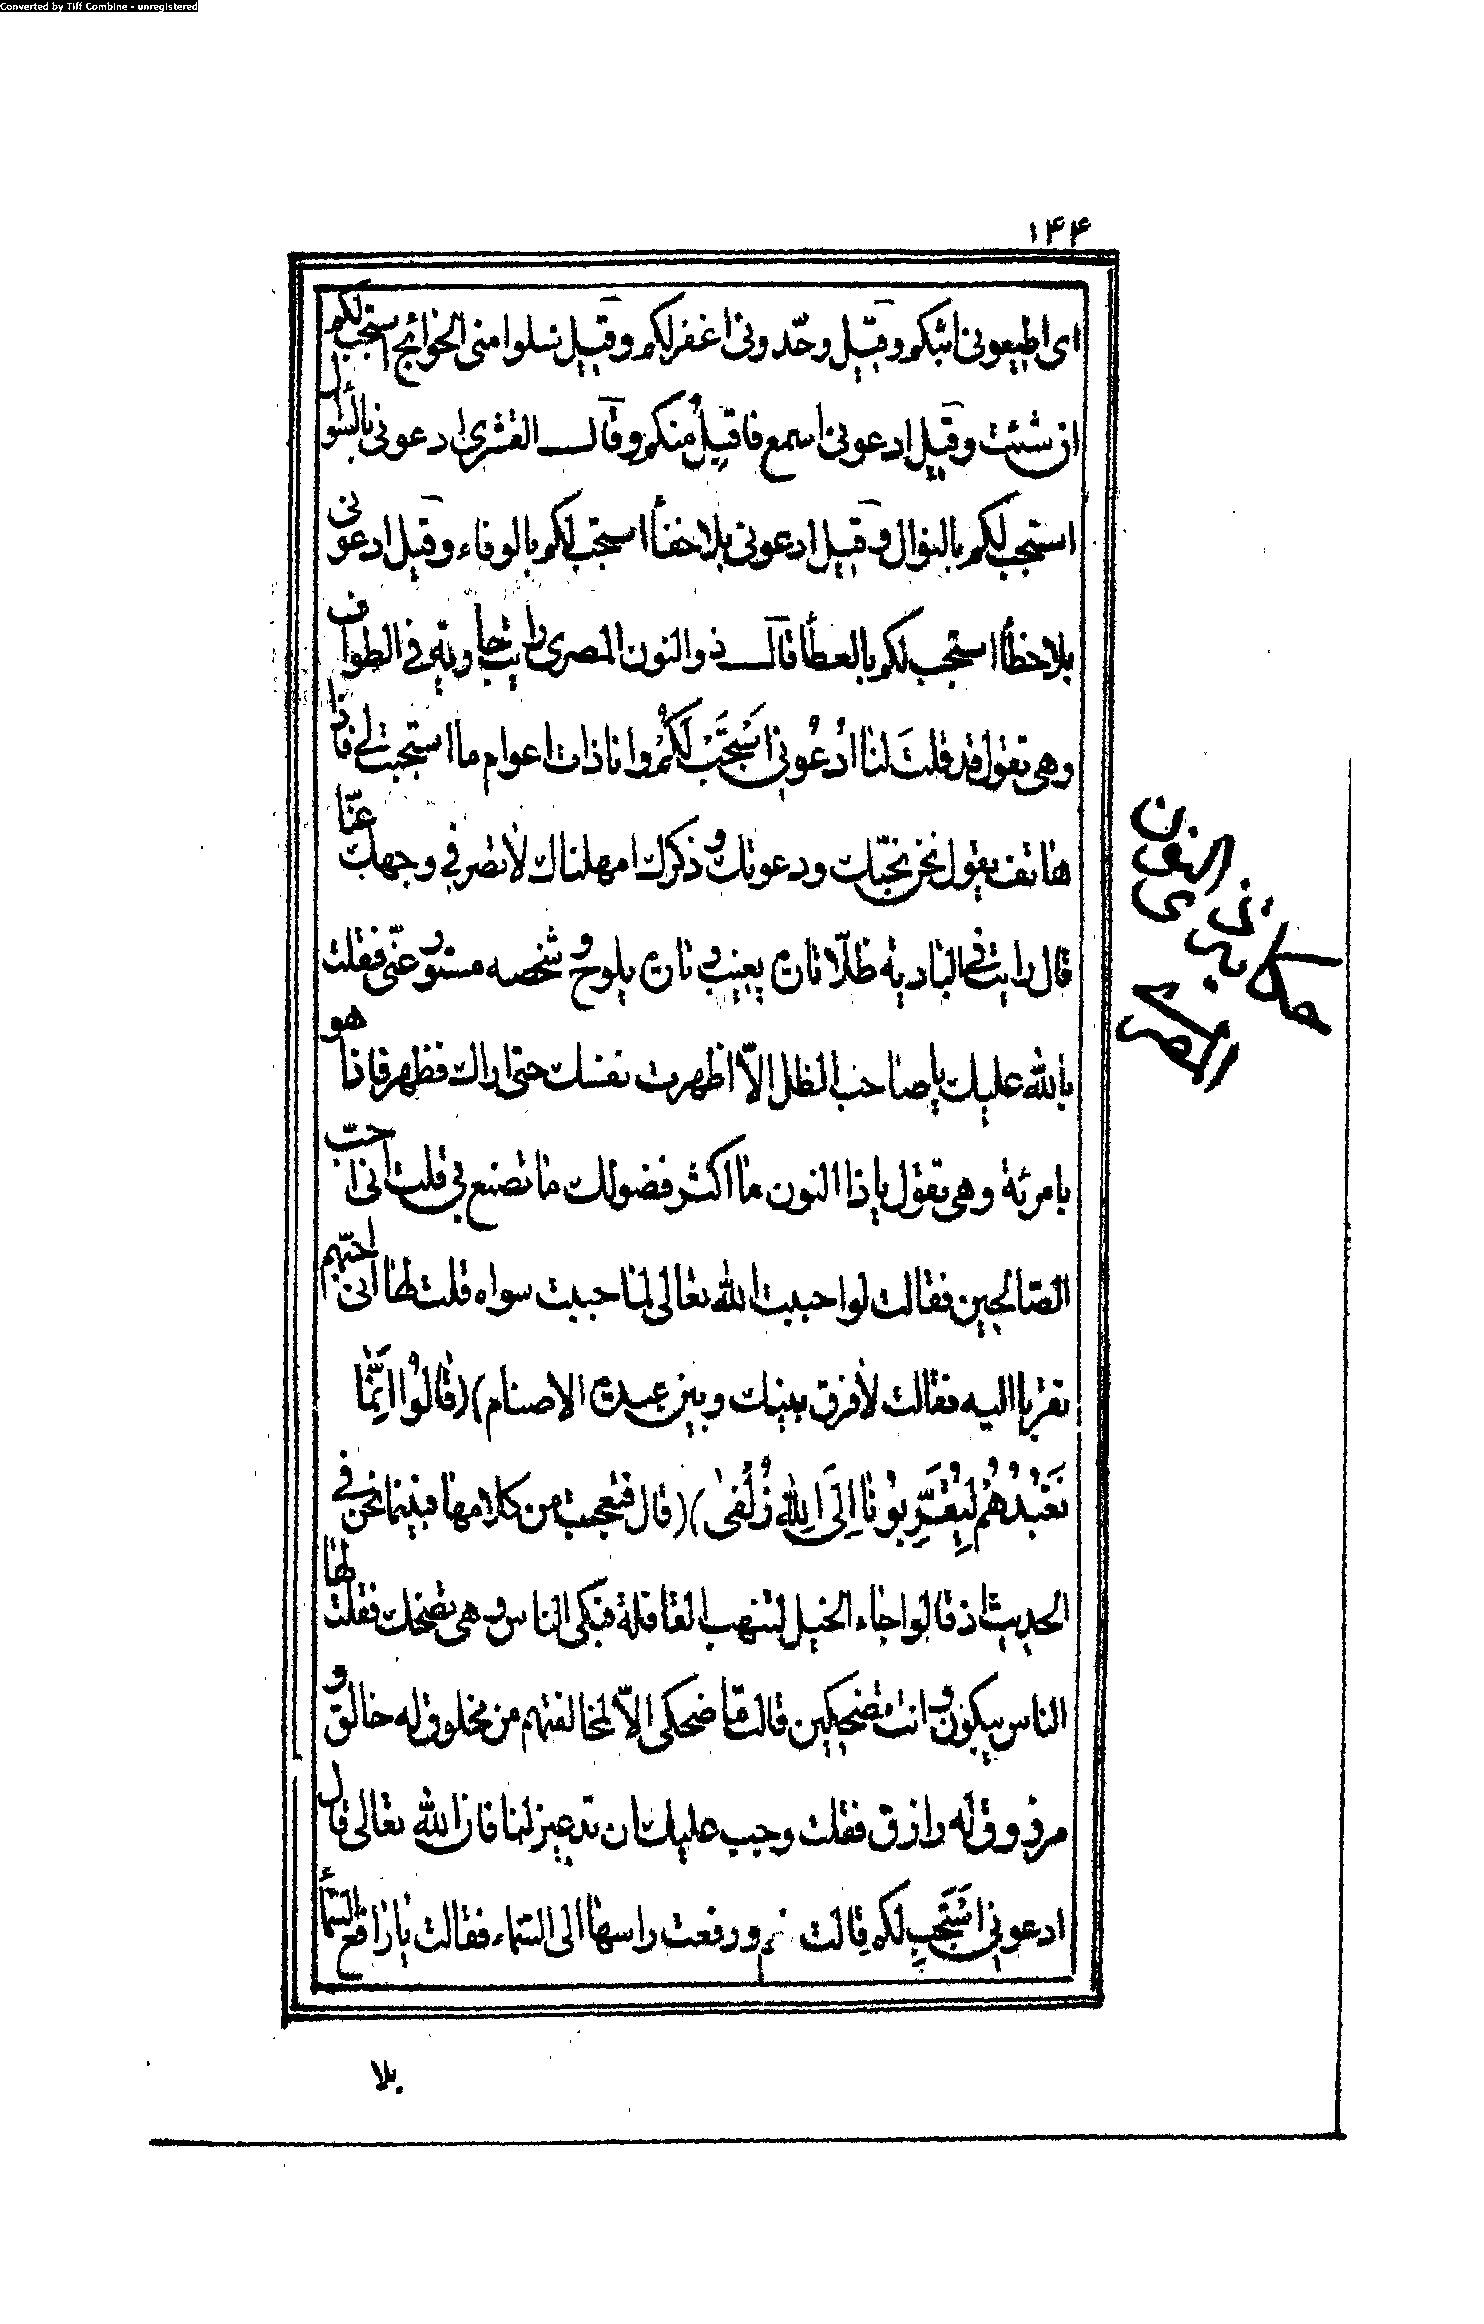 Converted by Tiff Combine - unregistered
۱۴۴
ای اطیعونی اثبکم وقیل وحّدونی اغفرلکم وقیل سلوا منی الحوائج استجب لکم
ان شئت وقیل ادعونی اسمع فاقیل منکم وقال القشری ادعونی بالسؤال
استجب لکم بالنوال وقیل ادعونی بلاخفأ استجب لکم بالوفاء وقیل ادعونی
بلاخطأ استجب لکم بالعطأ قال ذوالنون المصری رایت جاویة فی الطواف
وهی تقول قد قلت لنا ادْعُونی اَسْتَجَبْ لَکُمْ وانا ذات اعوام ما استجبت لی فاذا
هاتف یقول نحن نحبّک ودعوتک وذکرک امهلناک لأتصرفی وجهک عنّا
قال رایت فی البادیة ظلّا تارة یغیب و تارة یلوح و شخصه مستور عنّی فقلت
بالله علیک یا صاحب الظل الّا اظهرت نفسک حتی اراک فظهر فاذا هو
بامرئة وهی تقول یا ذا النون ما اکثر فضولک ما تصنع بی قلت انی احبّ
الصّالحین فقالت لو احببت الله تعالی لما حببت سواه قلت لها انی احبّهم
تقربا الیه فقالت لأفرق بینک وبین عبدة الاصنام)(قالُوا اِنَّما
نَعْبُدُهُمْ لِیُقَرِّبُونا اِلَی اللهِ زُلْفیٰ)(قال فتعجبت من کلامها فبینما نحن فی
الحدیث اذ قالوا جاء الخیل لتنهب القافلة فبکی الناس و هی تضحک فقلت لها
الناس یبکون و انت تضحکین قالت ما ضحکی الّا لمخالفتهم من مخلوق له خالق و
مرزوق له رازق فقلت وجب علیک ان تدعین لنا فان الله تعالی قال
ادعونی اَسْتَجِب لکم قالت ورفعت راسها الی السّماء فقالت یا رافع السّمأ
حکایة ذی النون
المصری
بلا